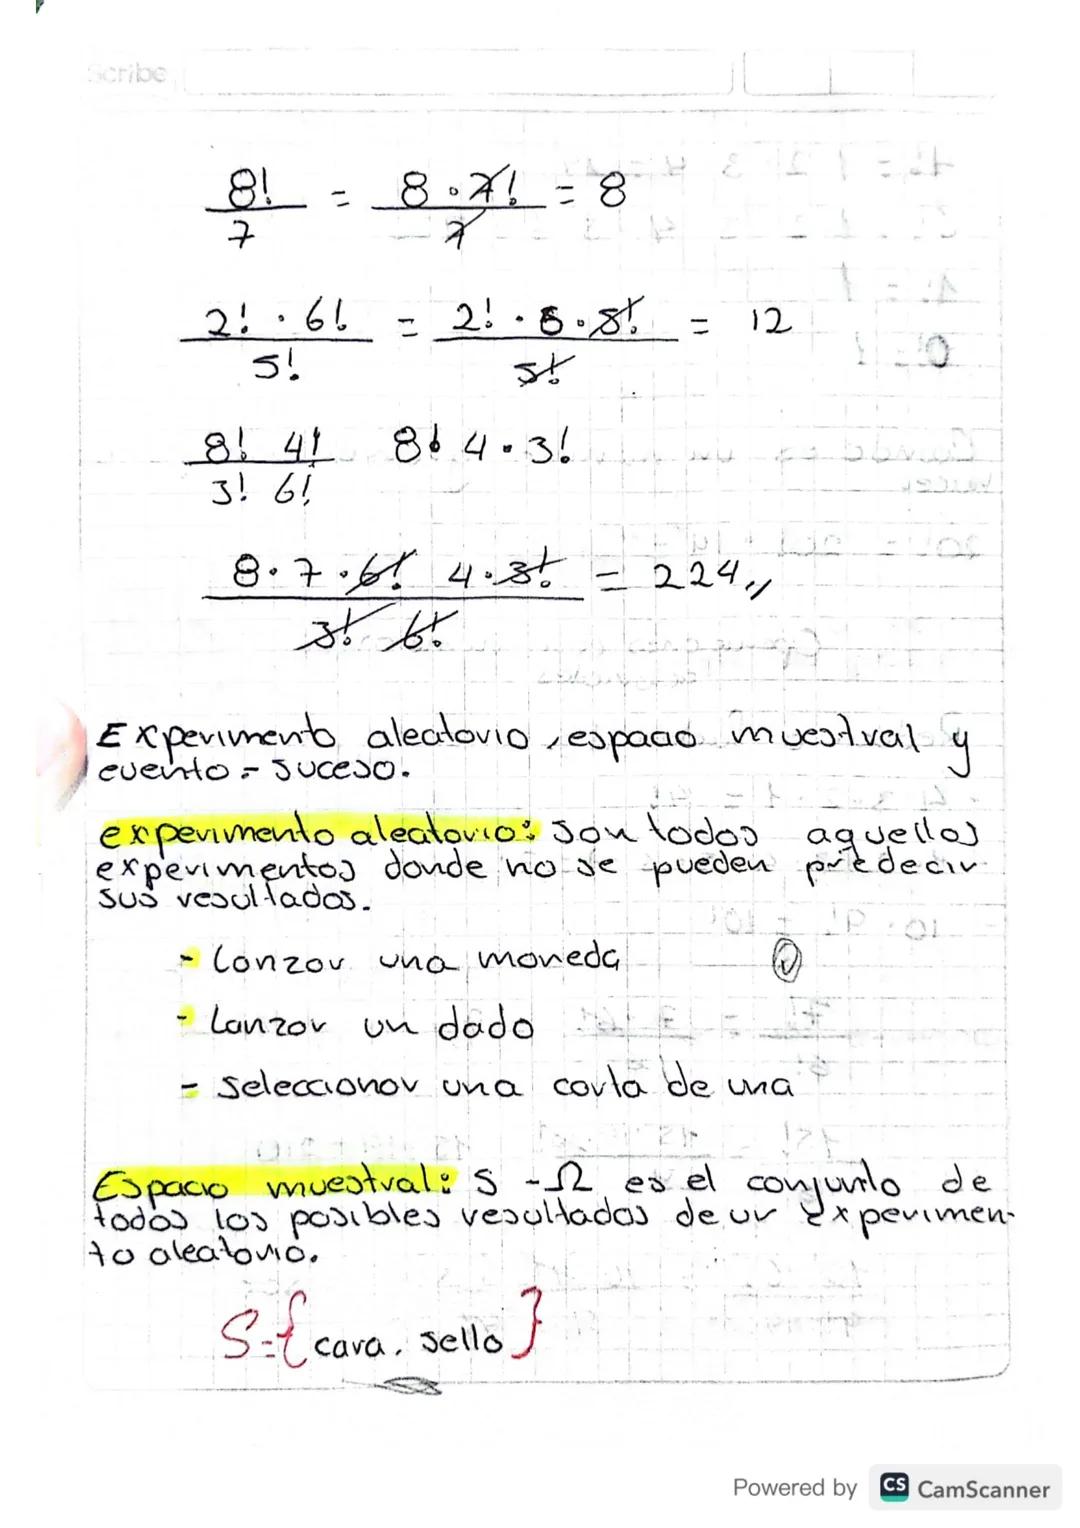 Scribe
8!/7 = 8 · 7!/7 = 8
2! · 6!/5! = 2! · 6 · 5!/5! = 12
8! 4!/3! 6! 8! 4 · 3!
8 · 7 · 6! 4 · 3!/3! 6! = 224,,
Experimento aleatorio, espacio muestral y
evento = suceso.
experimento aleatorio: son todos aquellos
experimentos donde no se pueden predecir
sus resultados.
- Lanzar una moneda
- Lanzar un dado
- seleccionar una carta de una
Espacio muestral: S - Ω es el conjunto de
todos los posibles resultados de un experimen-
to aleatorio.
S={cara, sello}
Powered by CS CamScanner